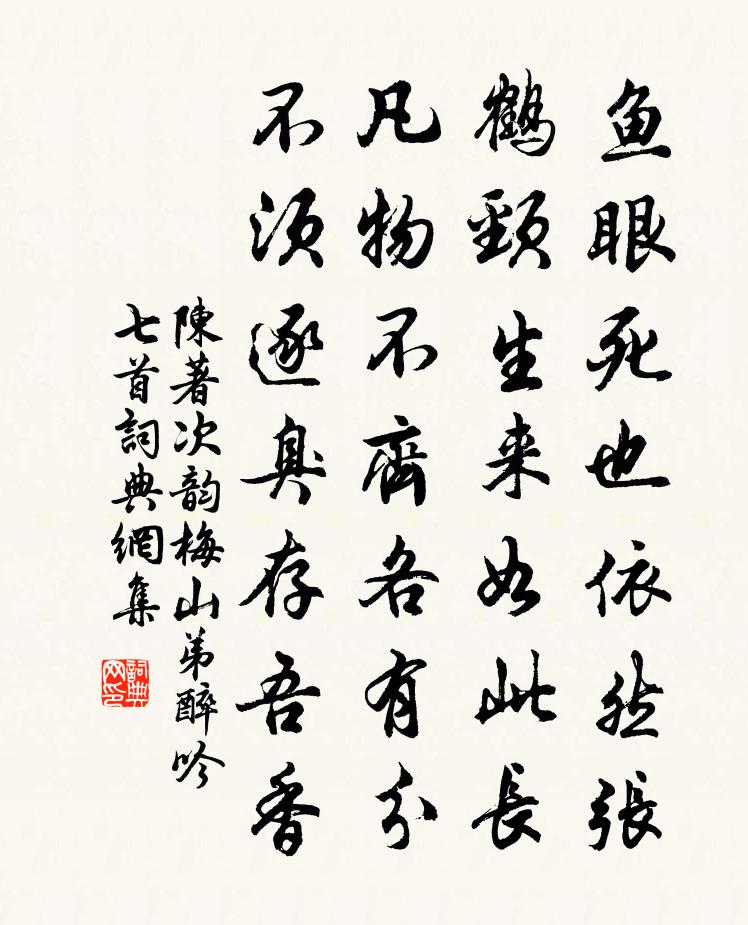 鱼眼死也依然張
鶴頸生来如此長
凡物不齊各有分
不須逐臭存吾香
陳著次韵梅山弟醉吟
七首詞典網集
詞典网印